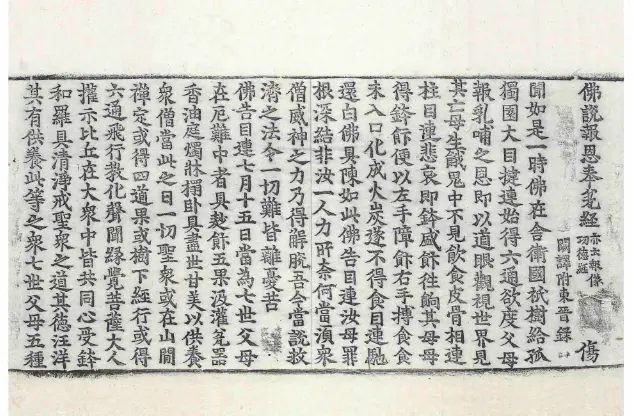 佛說報恩奉瓫經 亦云報像功德經 闕譯附東晉録 傷
聞如是一時佛在舎衛國祇樹給孤
獨園大目揵連始得六通欲度父母
報乳哺之恩即以道眼觀視世界見
其亡母生餓鬼中不見飲食皮骨相連
柱目連悲哀即鉢盛飯往餉其母母
得鉢飯便以左手障飯右手摶食食
未入口化成火炭遂不得食目連馳
還白佛具陳如此佛告目連汝母罪
根深結非汝一人力所奈何當湏衆
僧威神之力乃得解脫吾今當說救
濟之法令一切難皆離憂苦
佛告目連七月十五日當為七世父母
在厄難中者具麨飯五果汲灌瓫器
香油庭燭牀搨卧具盡世甘美以供養
衆僧當此之日一切聖衆或在山間
禪定或得四道果或樹下經行或得
六通飛行教化聲聞緣覺菩薩大人
權示比丘在大衆中皆共同心受鉢
和羅具清淨戒聖衆之道其德汪洋
其有供養此等之衆七世父母五種